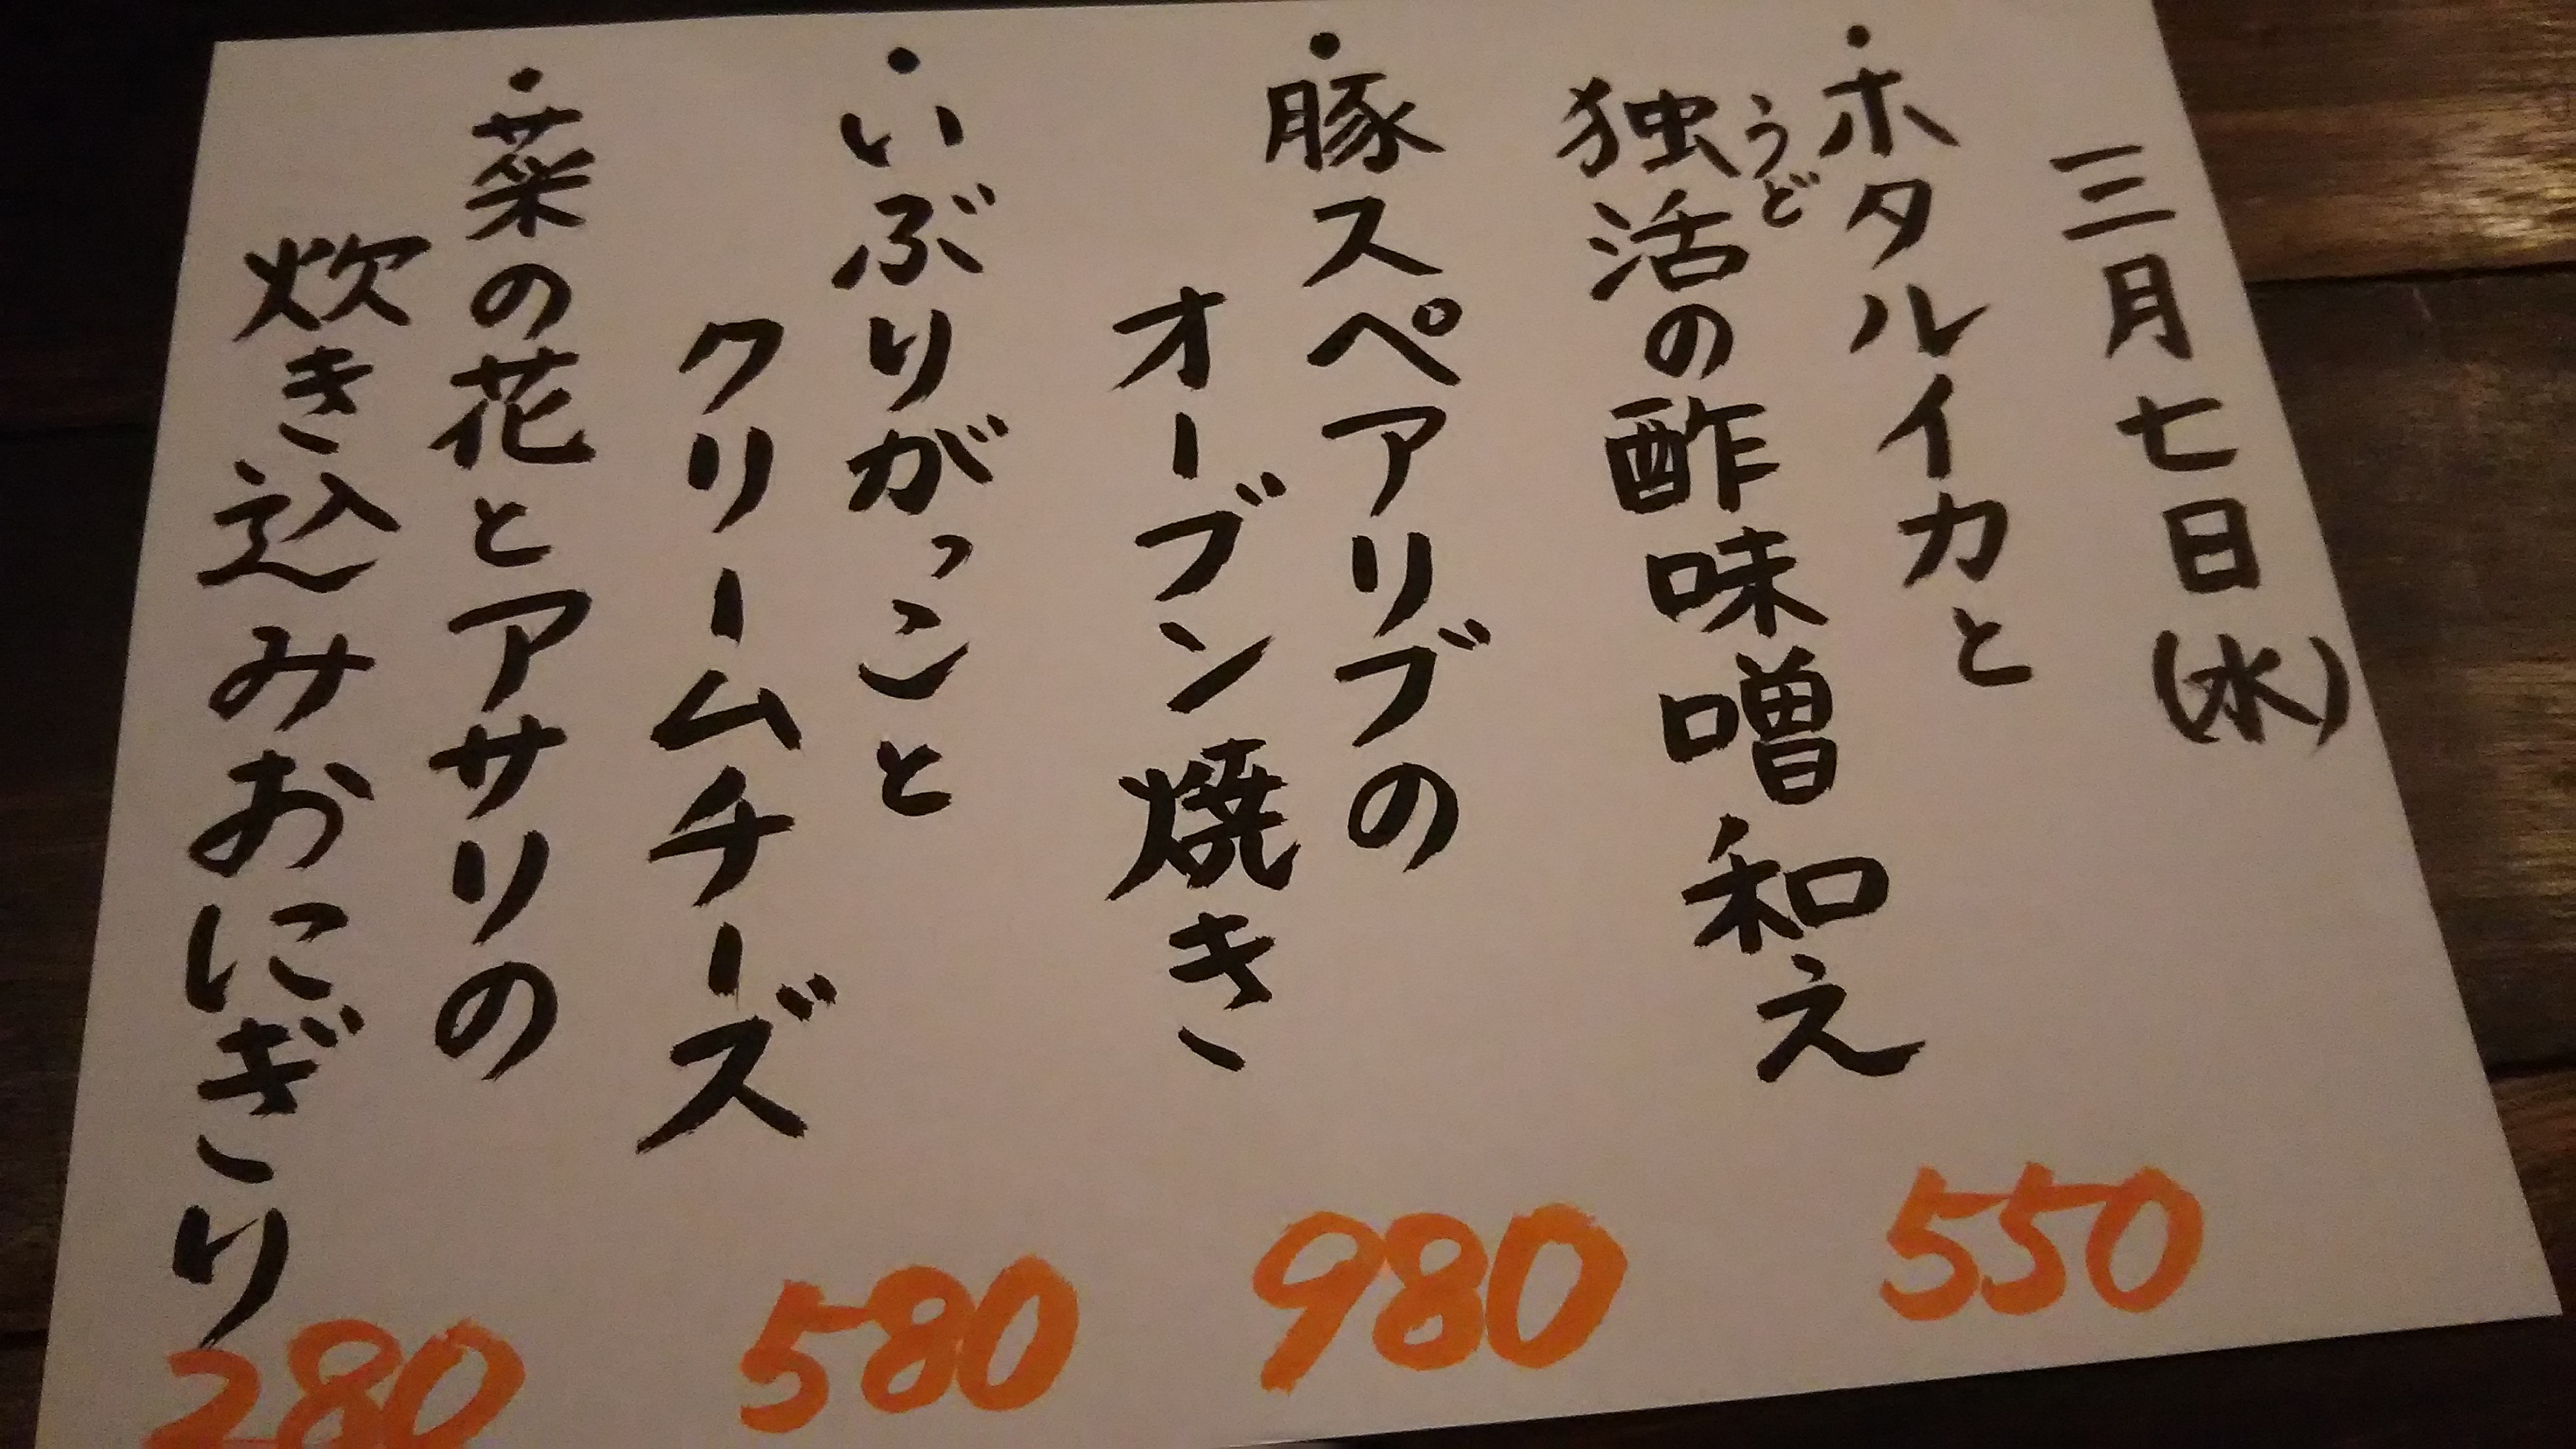 三月七日(水)
・ホタルイカと
うど
独活の酢味噌和え
550
・豚スペアリブの
オーブン焼き
980
・いぶりがっこと
クリームチーズ
580
・菜の花とアサリの
炊き込みおにぎり
280